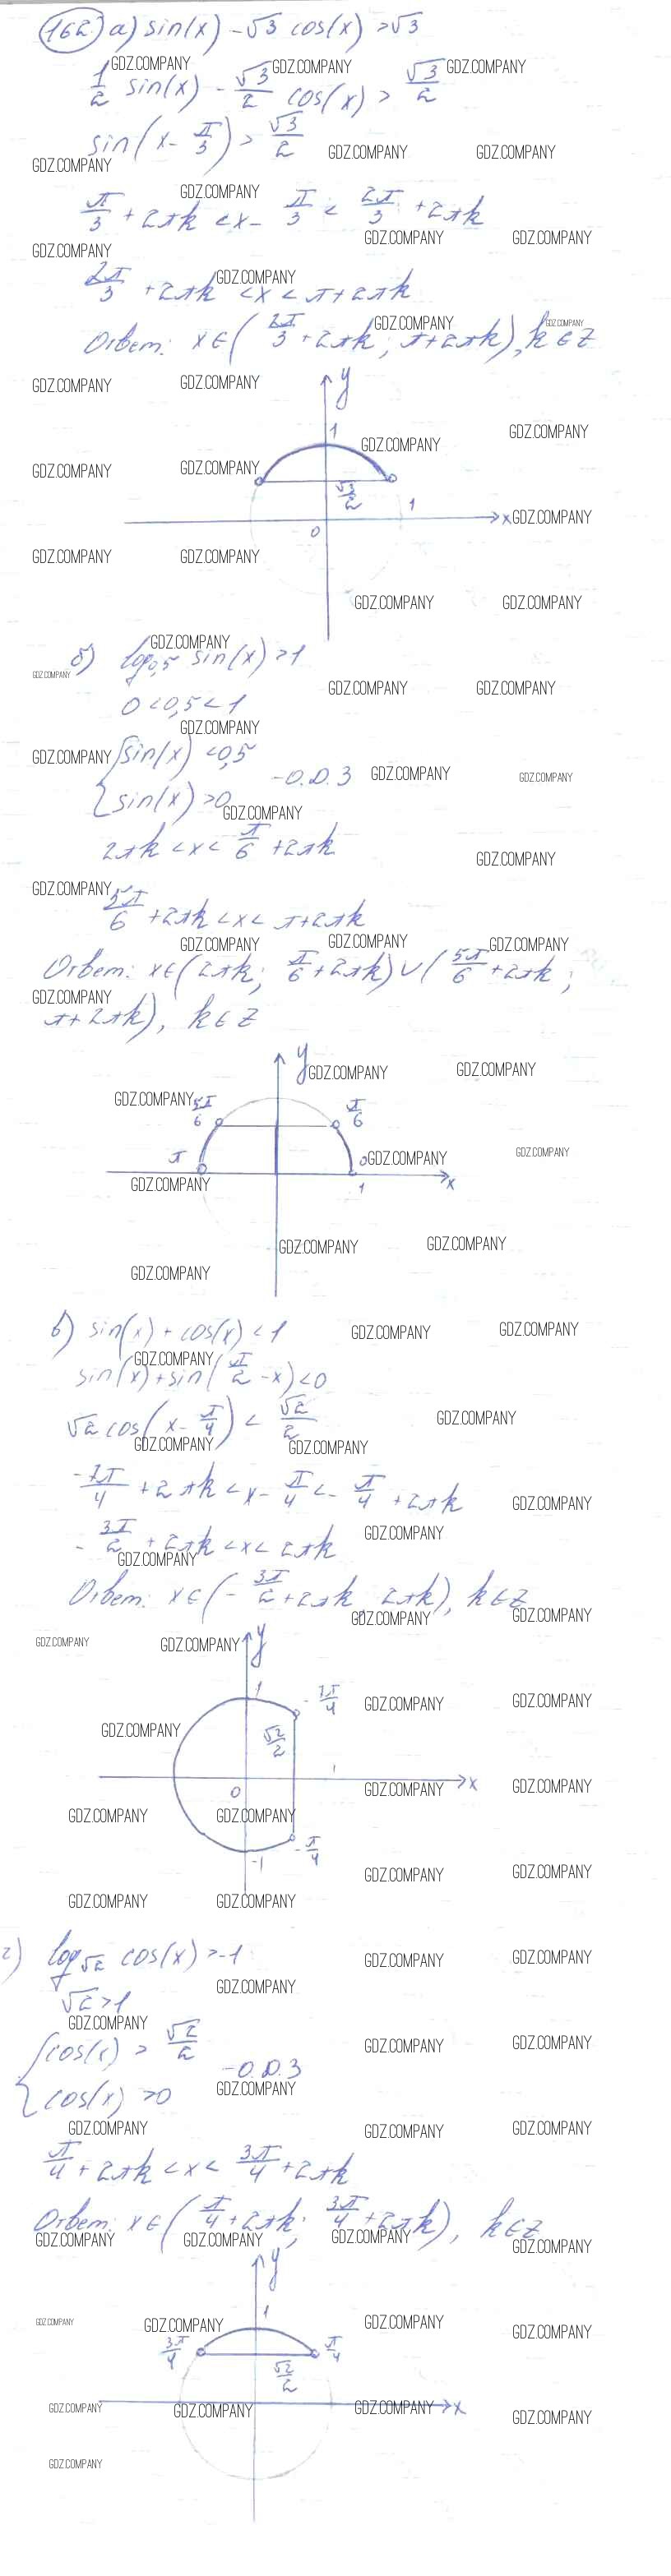 162. а) sin(x) - √3 cos(x) > √3
1/2 sin(x) - √3/2 cos(x) > √3/2
sin(x - π/3) > √3/2
π/3 + 2πk < x - π/3 < 2π/3 + 2πk
2π/3 + 2πk < x < π + 2πk
Ответ: x ∈ (2π/3 + 2πk; π + 2πk), k ∈ Z
y
1
√3/2
1
x
0
б) log0,5 sin(x) > 1
0 < 0,5 < 1
{sin(x) < 0,5
{sin(x) > 0 - О.Д.З
2πk < x < π/6 + 2πk
5π/6 + 2πk < x < π + 2πk
Ответ: x ∈ (2πk; π/6 + 2πk) ∪ (5π/6 + 2πk;
π + 2πk), k ∈ Z
y
5π/6 π/6
π 0
1 x
в) sin(x) + cos(x) < 1
sin(x) + sin(π/2 - x) < 0
√2 cos(x - π/4) < √2/2
-7π/4 + 2πk < x - π/4 < -π/4 + 2πk
-3π/2 + 2πk < x < 2πk
Ответ: x ∈ (-3π/2 + 2πk 2πk), k ∈ Z
y
1 - 7π/4
√2/2
0 1 x
-1 - π/4
г) log√2 cos(x) > -1
√2 > 1
{cos(x) > √2/2
{cos(x) > 0 - О.Д.З
π/4 + 2πk < x < 3π/4 + 2πk
Ответ: x ∈ (π/4 + 2πk; 3π/4 + 2πk), k ∈ Z
y
1
3π/4 π/4
√2/2
x
GDZ.COMPANY